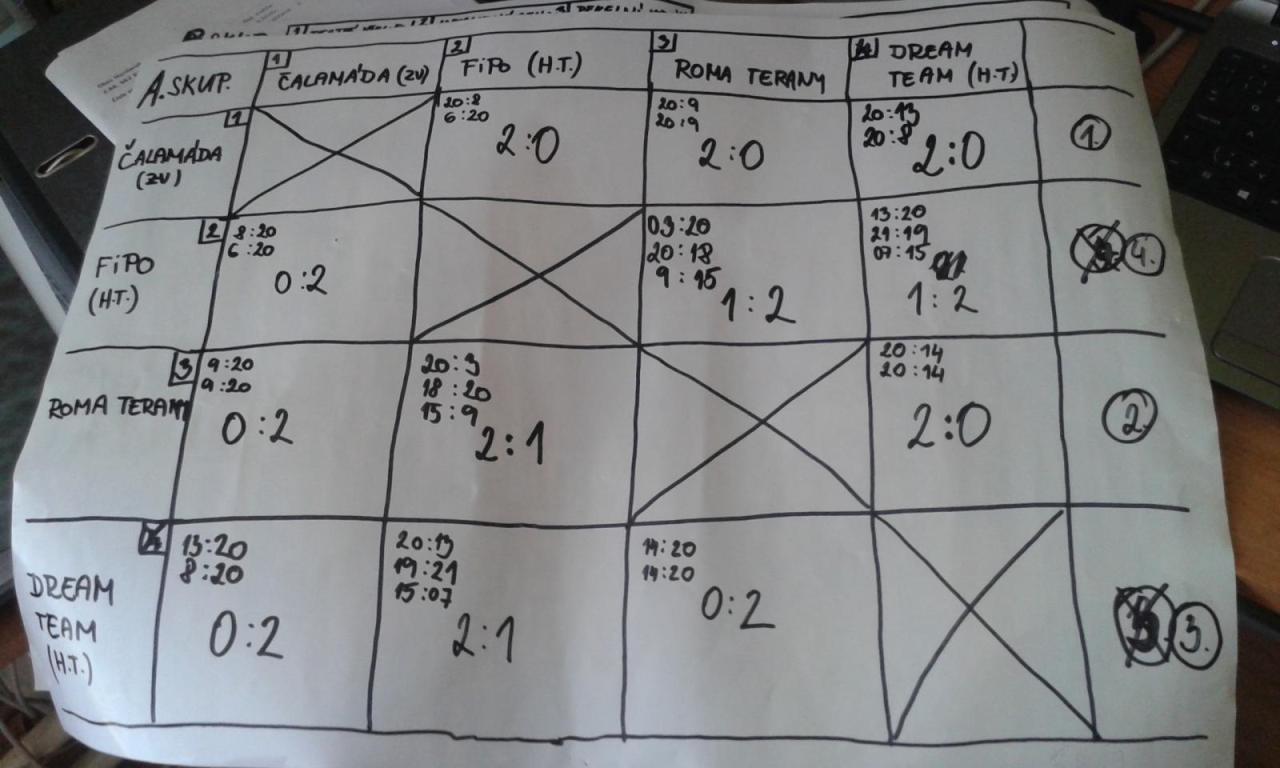 A. SKUP.
1
ČALAMÁDA (ZV)
2
FiPO (H.T.)
3
ROMA TERANY
4
DREAM
TEAM (H.T)
1
ČALAMÁDA
(ZV)
20:8
6:20
2:0
20:9
20:9
2:0
20:13
20:8
2:0
1.
2
FiPO
(H.T.)
8:20
6:20
0:2
03:20
20:18
9:15
1:2
13:20
21:19
07:15
1:2
4.
3
ROMA TERANY
9:20
9:20
0:2
20:3
18:20
15:9
2:1
20:14
20:14
2:0
2.
4
DREAM
TEAM
(H.T.)
13:20
8:20
0:2
20:13
19:21
15:07
2:1
14:20
14:20
0:2
3.